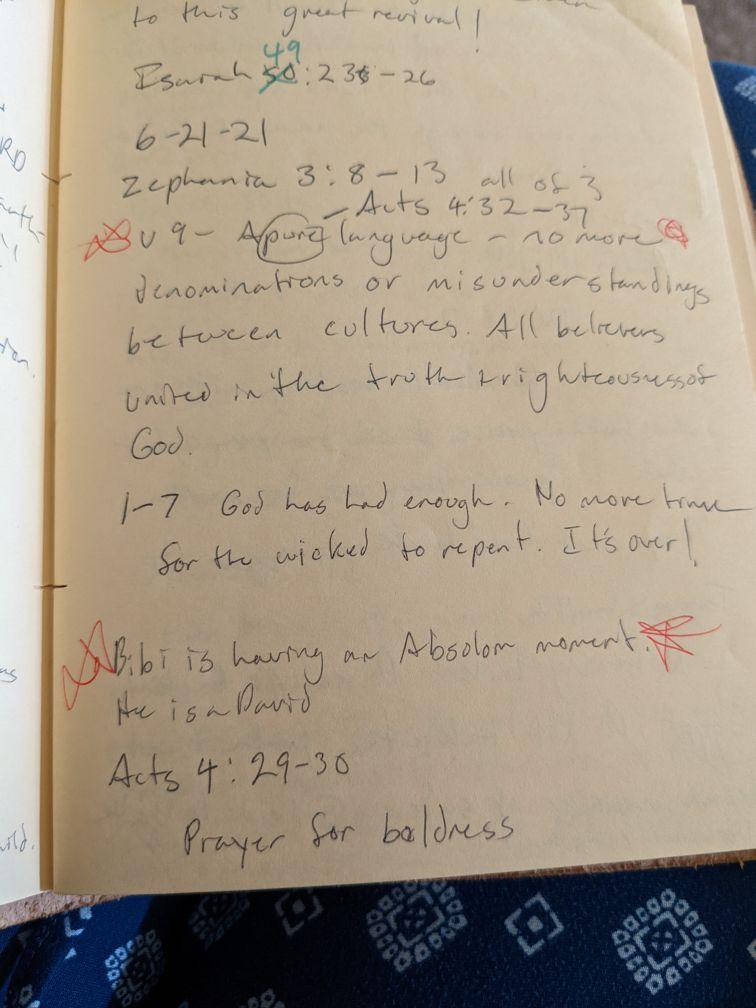 to this great revival!
49
Isaiah 50:23 - 26
6-21-21
Zephania 3:8 - 13 all of 3
- Acts 4:32 - 37
v 9 - A pure language - no more
denominations or misunderstandings
between cultures. All believers
united in the truth & righteousness of
God.
1-7 God has had enough. No more time
for the wicked to repent. It's over!
Bibi is having an Absolom moment.
He is a David
Acts 4:29-30
Prayer for boldness
RD
ion.
ild.